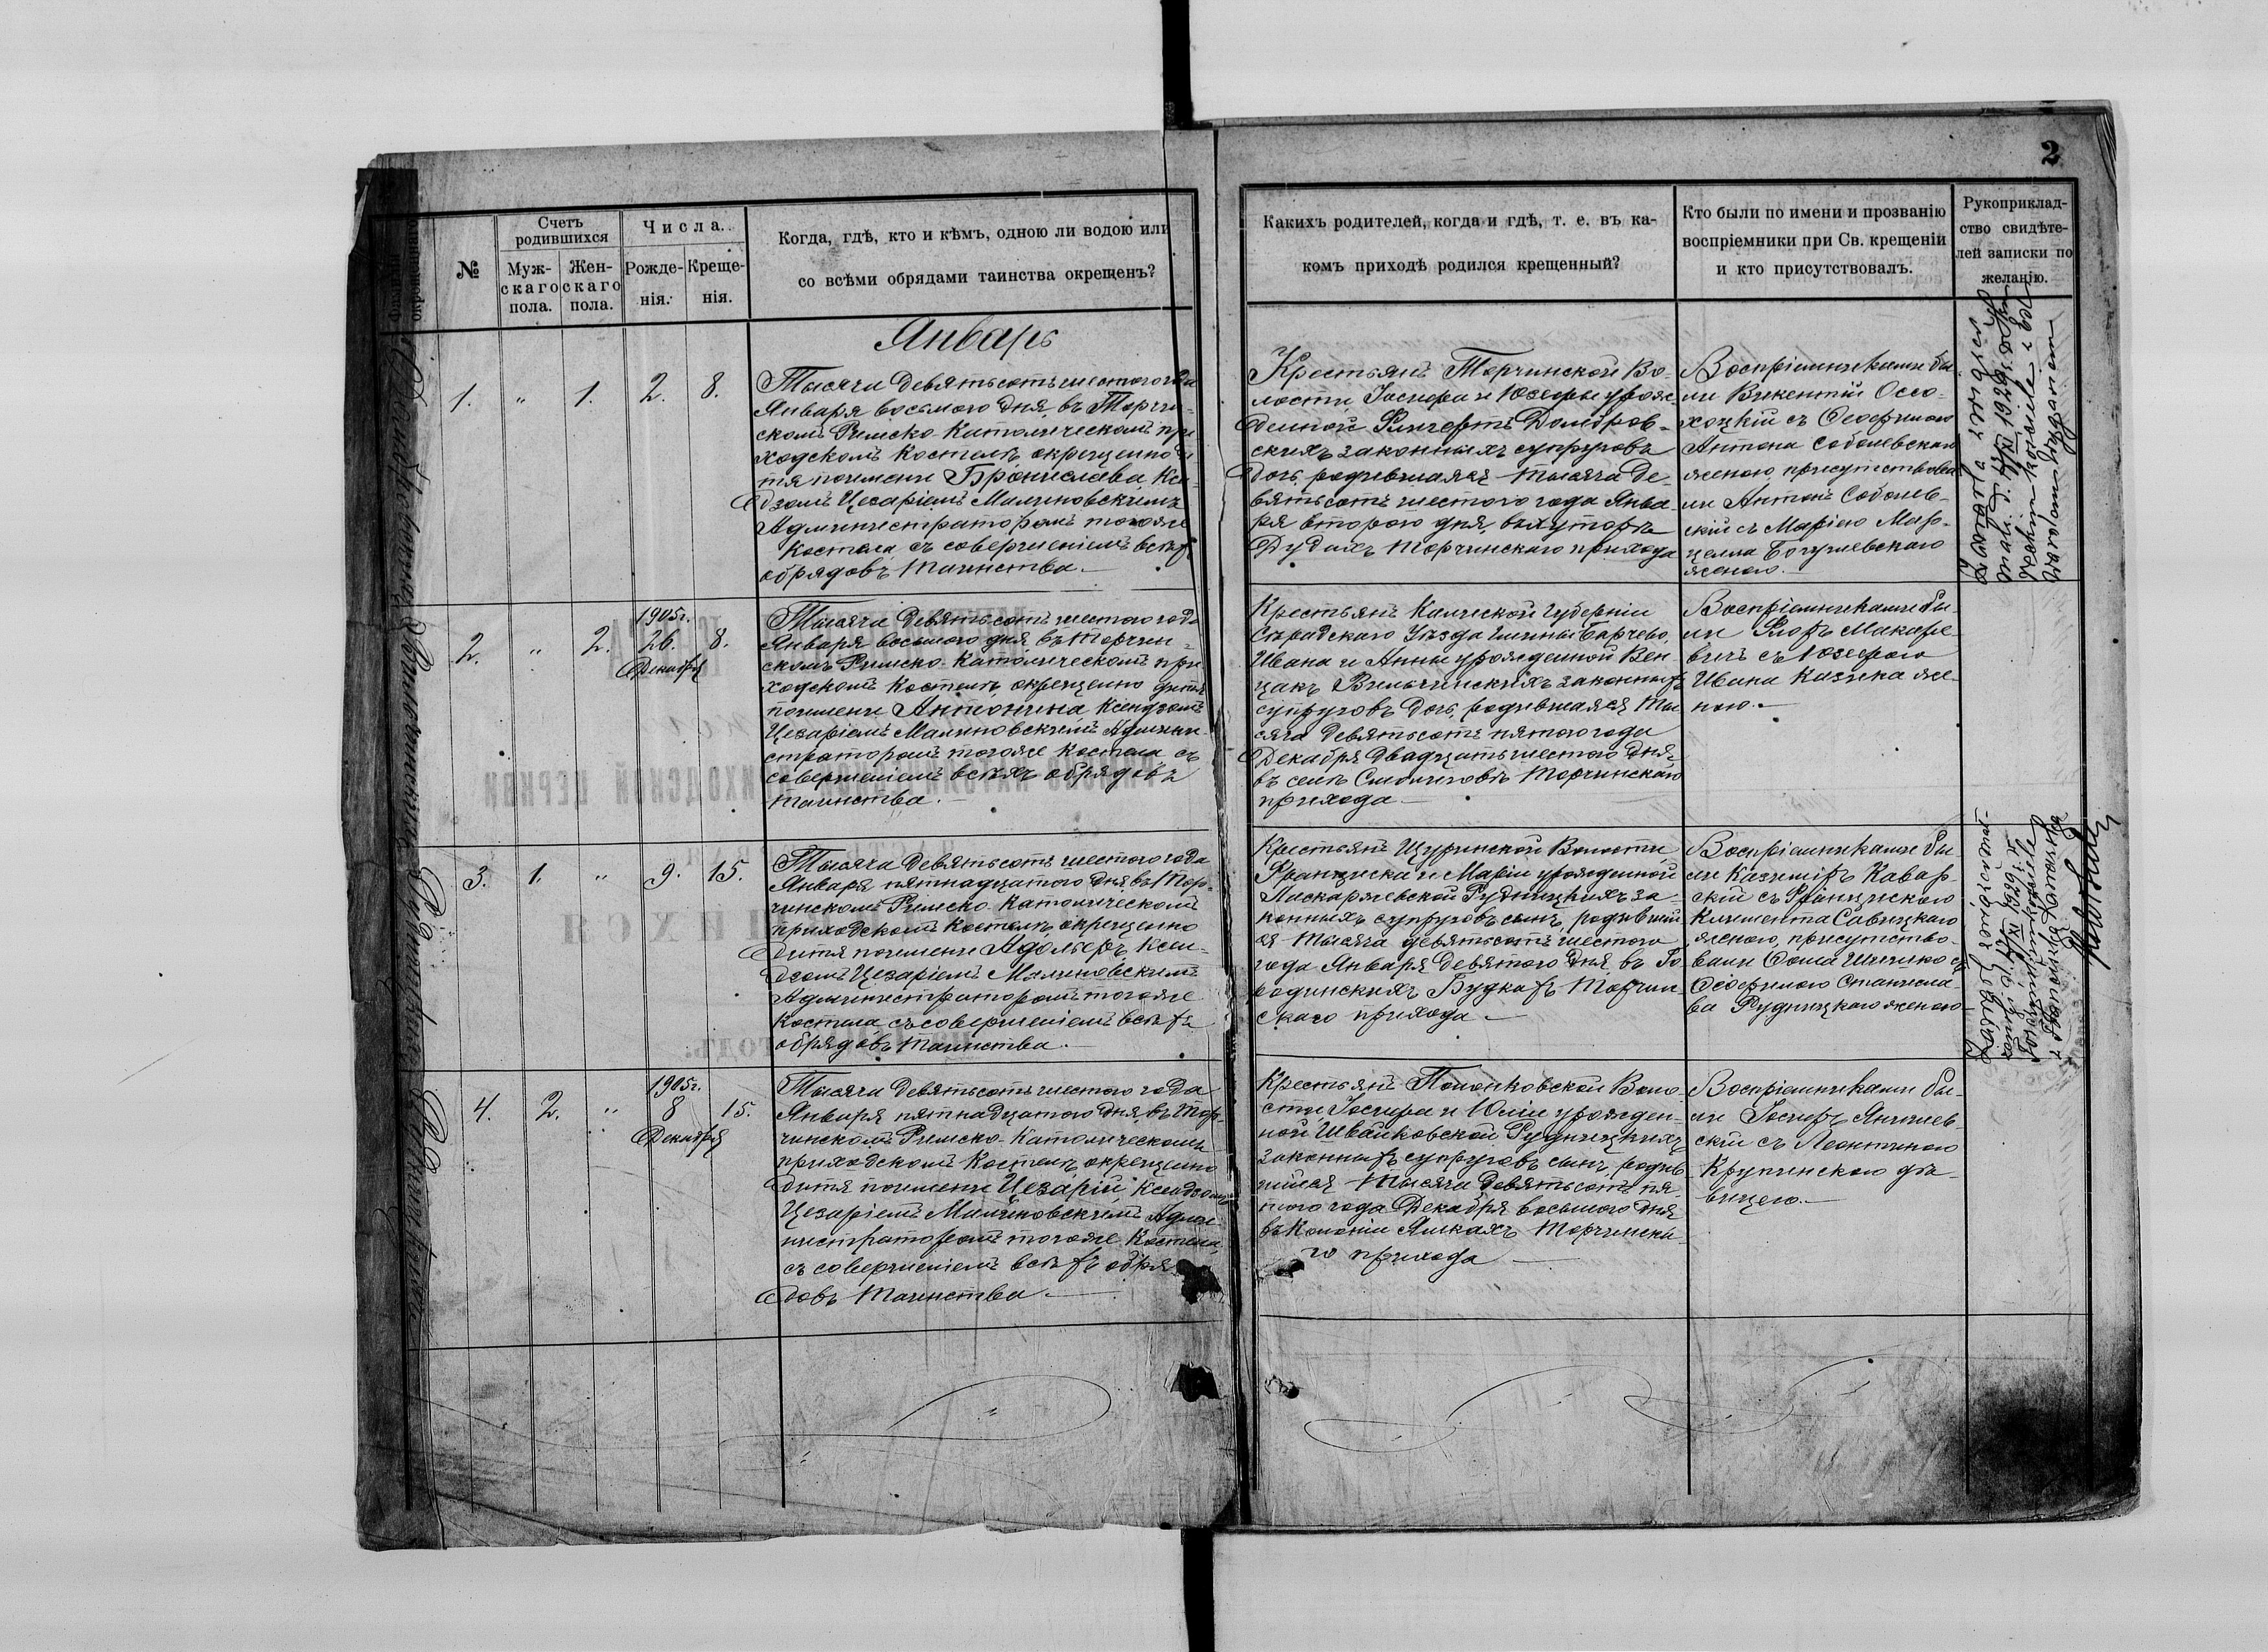 2
№
Счетъ
родившихся
Муж-
скаго
пола.
Жен-
скаго
пола.
Числа.
Рожде-
нія.
Креще-
нія.
Когда, гдѣ, кто и кѣмъ, одною ли водою или
со всѣми обрядами таинства окрещенъ?
Какихъ родителей, когда и гдѣ, т. е. въ ка-
комъ приходѣ родился крещенный?
Кто были по имени и прозванію
воспріемники при Св. крещеніи
и кто присутствовалъ.
Рукоприклад-
ство свидѣте-
лей записки по
желанію.
Январь
1. " 1. 2. 8.
Тысяча девятьсотъ шестого года
Января восьмого дня, въ Торчин-
скомъ Римско-Католическомъ при
ходскомъ Костелѣ окрещено ди
тя по имени Бронислава, Ксен
дзомъ Цезаріемъ Малиновскимъ
Администраторомъ тогоже
Костела, съ совершеніемъ всѣхъ
обрядовъ таинства.
Крестьянъ Торчинской Во-
лости Іосифа и Юзефы урож-
денной Домбров-
скихъ законныхъ супруговъ
дочь, родившаяся тысяча де-
вятьсотъ шестого года Янва-
ря второго дня, въ хуторѣ
Рудахъ Торчинскаго прихода
Воспріемниками бы
ли Викентій Оссо-
хоцкій съ Ѳеофилою
Антона Соболевскаго
женою, присутствова
ли Антонъ Соболев-
скій съ Маріею Мар-
целла Богушевскаго
женою.
2. " 2. 1905г. 26. Декабря 8.
Тысяча девятьсотъ шестого года
Января восьмого дня, въ Торчин-
скомъ Римско-Католическомъ при
ходскомъ Костелѣ, окрещено дитя
по имени Антонина, Ксендзомъ
Цезаріемъ Малиновскимъ Админи-
страторомъ тогоже Костела, съ
совершеніемъ всѣхъ обрядовъ
таинства.
Крестьянъ Калиской Губерніи
Сѣрадскаго Уѣзда гмины Барчево,
Ивана и Анны урожденной Вен-
цакъ Вильчинскихъ законныхъ
супруговъ дочь, родившаяся ты
сяча девятьсотъ пятого года
Декабря двадцать шестого дня
въ селѣ Смолиговѣ Торчинскаго
прихода
Воспріемниками бы
ли Флоръ Макаре
вичъ съ Юзефою
Ивана Казика же-
ною.
3. 1. " 9. 15.
Тысяча девятьсотъ шестого года
Января пятнадцатого дня, въ Тор-
чинскомъ Римско-Католическомъ
приходскомъ Костелѣ, окрещено
дитя по имени Адольфъ, Ксен-
дзомъ Цезаріемъ Малиновскимъ
Администраторомъ тогоже
Костела, съ совершеніемъ всѣхъ
обрядовъ таинства.
Крестьянъ Щуринской Волости,
Франциска и Маріи урожденной
Пискаржевской Рудницкихъ за-
конныхъ супруговъ сынъ, родившій
ся тысяча девятьсотъ шестого
года Января девятого дня, въ Го
родинскихъ Будкахъ Торчин-
скаго прихода
Воспріемниками бы
ли Казимиръ Кавар-
скій съ Францишкою
Климента Савицкаго
женою, присутство-
вали Ѳома съ
Ѳеофилою Станисла
ва Рудницкаго женою
4. 2. " 1905г. 8 Декабря 15.
Тысяча девятьсотъ шестого года
Января пятнадцатого дня, въ Тор-
чинскомъ Римско-Католическомъ
приходскомъ Костелѣ, окрещено
дитя по имени Цезарій, Ксендзомъ
Цезаріемъ Малиновскимъ Адми
нистраторомъ тогоже Костела,
съ совершеніемъ всѣхъ обря
довъ таинства.
Крестьянъ Полонковской Воло-
сти, Іосифа и Юліи урожден-
ной Швайковской Рудницкихъ
законныхъ супруговъ сынъ, родив
шійся тысяча девятьсотъ пя-
того года Декабря восьмого дня
въ Колоніи Ямкахъ Торчинска-
го прихода
Воспріемниками бы-
ли Іосифъ Янишев-
скій съ Леонтиною
Крупинскою дѣ-
вицею.